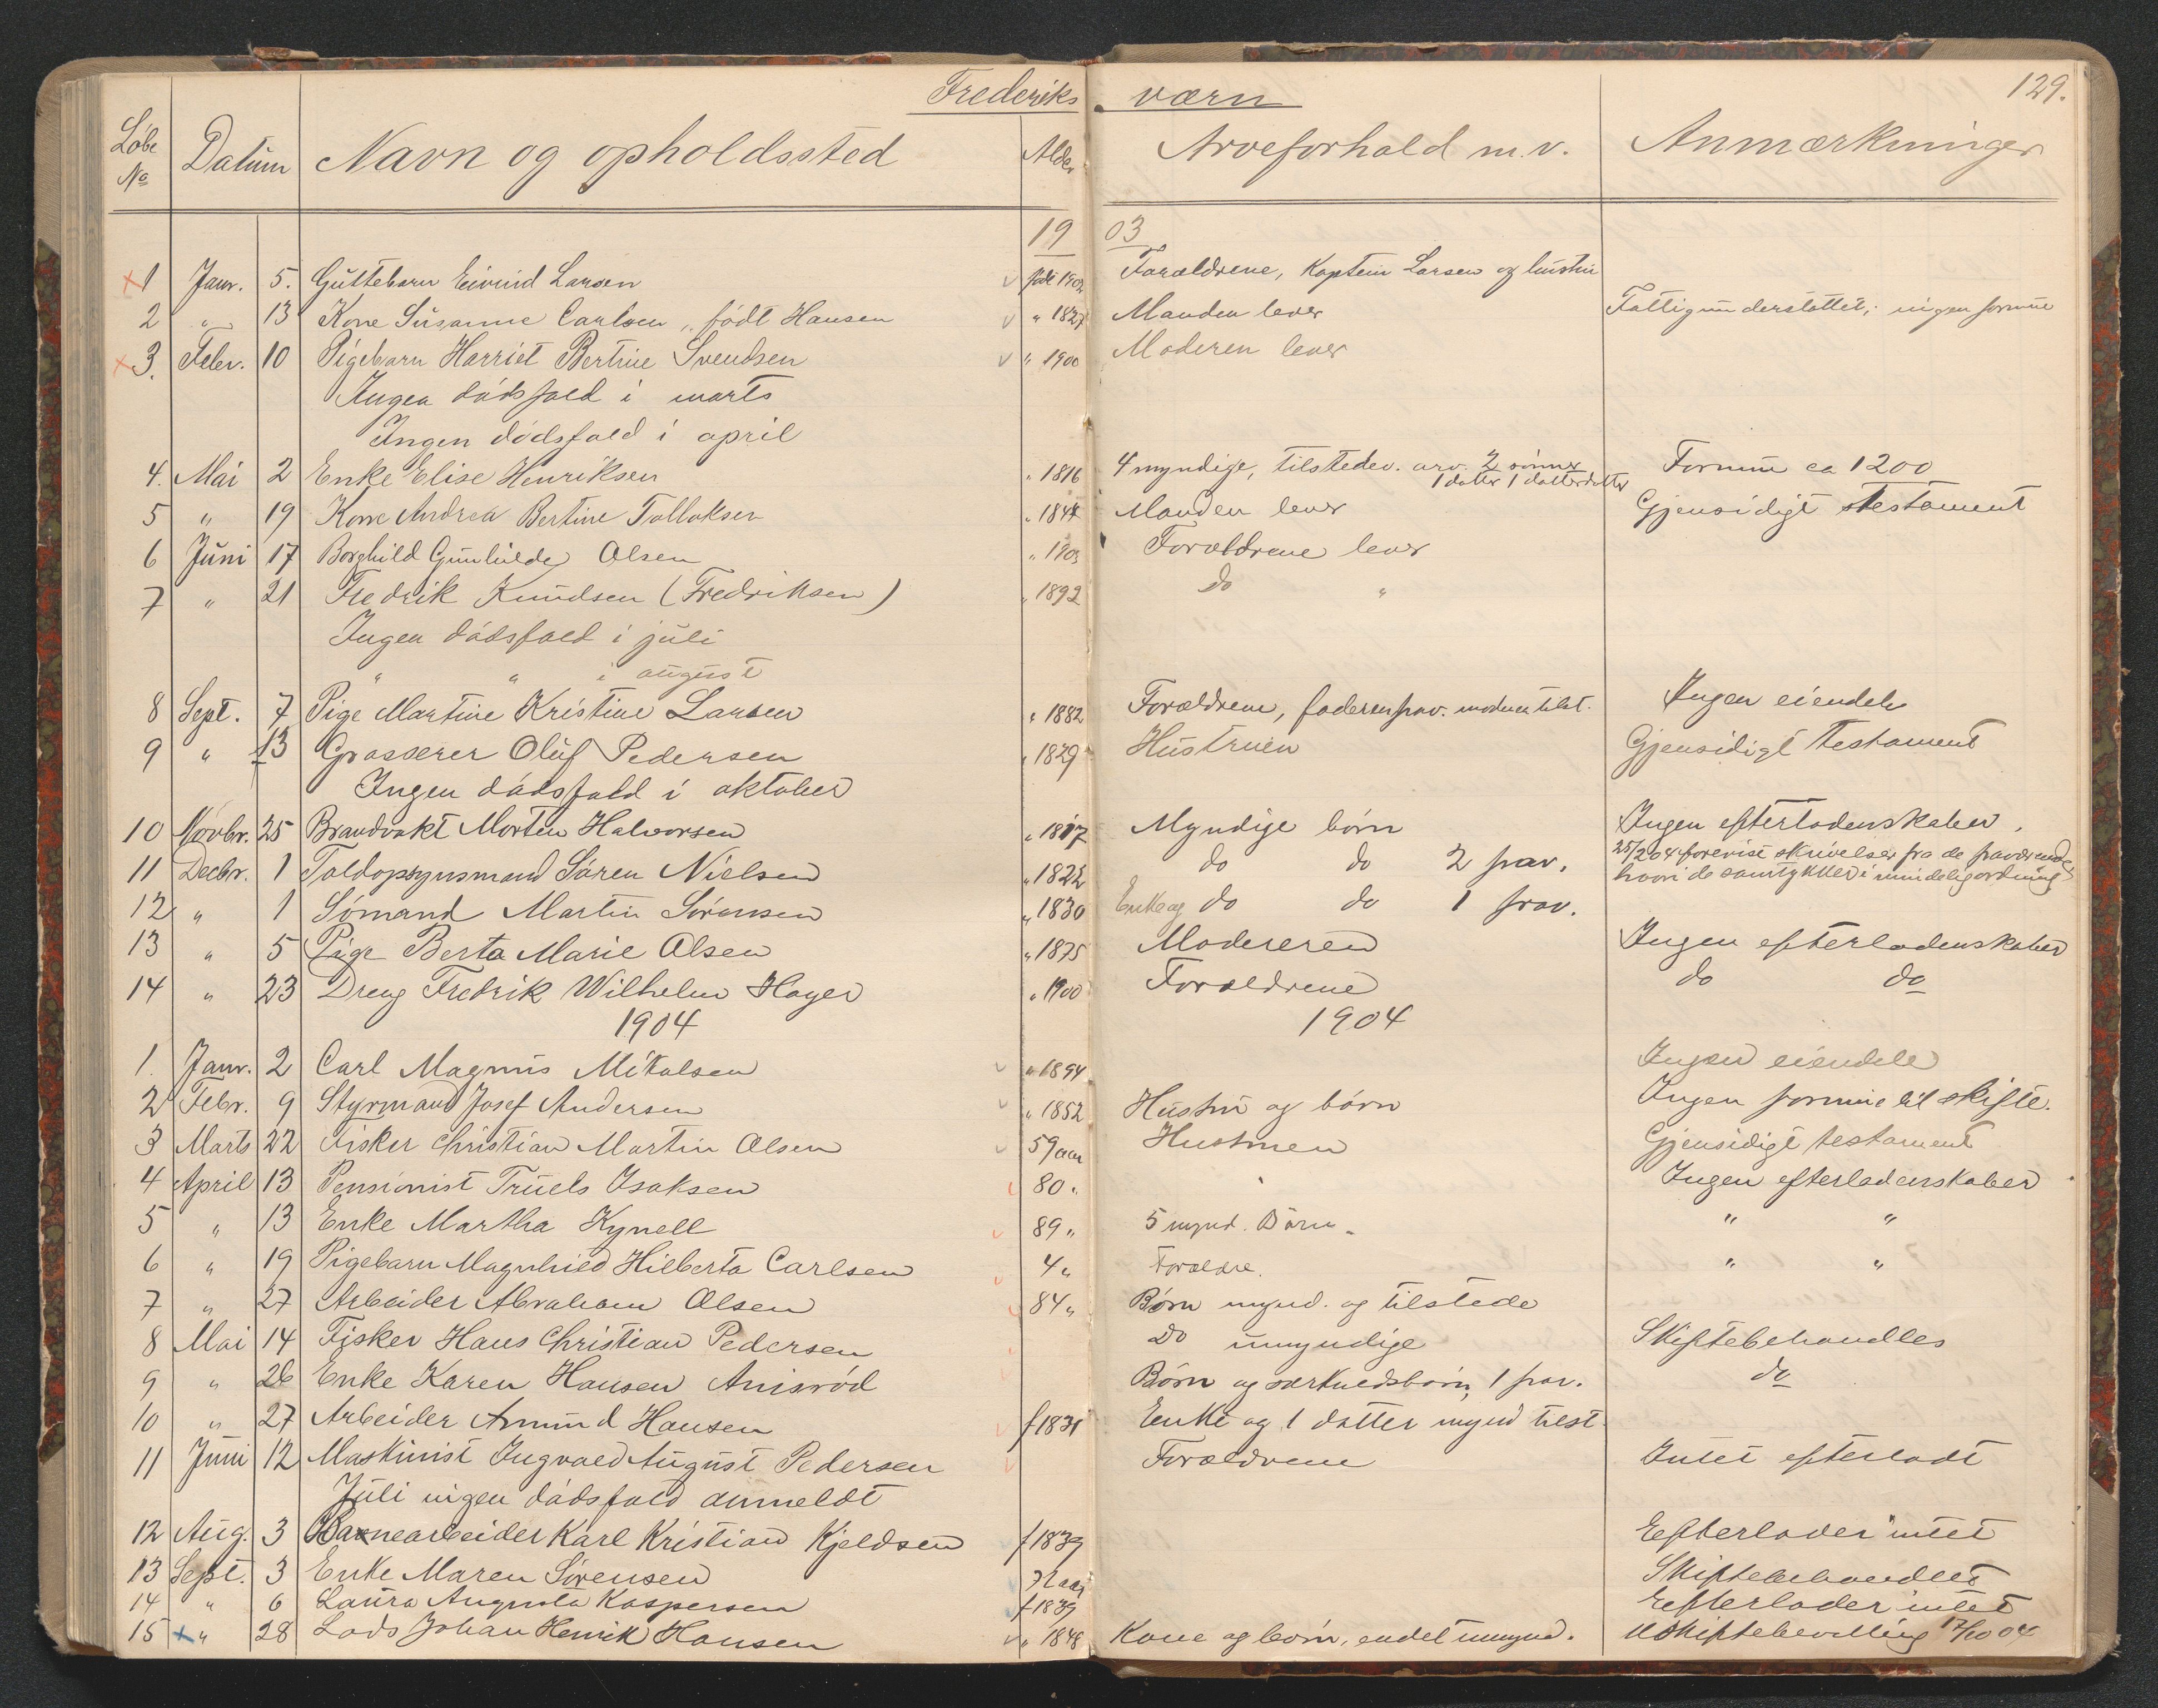 Frederiks værn 129.
Løbe No Datum Navn og opholdssted Alder Arveforhold m.v. Anmærkninger
1903
1 Janr. 5. Guttebarn Eivind Larsen født 1902 Forældrene, Kaptein Larsen og hustru
2 " 13 Kone Susanne Carlsen, født Hansen " 1827 Manden lever Fattigunderstøttet; ingen formue
3. Febr. 10 Pigebarn Harriet Bertine Svendsen " 1900 Moderen lever
Ingen dødsfald i marts
Ingen dødsfald i april
4. Mai 2 Enke Elise Henriksen " 1816 4 myndige, tilstedev. arv. 2 sønner 1 datter 1 datterdatter Formue ca 1200
5 " 19 Kone Andrea Bertine Tollaksen Manden lever Gjensidigt Testament
6 Juni 17 Borghild Gunhilde Olsen " 1903 Forældrene lever
7 " 21 Fredrik Knudsen (Fredriksen) " 1892 do "
Ingen dødsfald i juli
" " i august
8 Sept. 7 Pige Martine Kristine Larsen " 1882 Forældrene, faderen frav. moderen tilst. Ingen eiendele
9 " 13 Grosserer Oluf Pedersen " 1829 Hustruen Gjensidigt Testament
Ingen dødsfald i oktober
10 Novbr. 25 Brandvakt Morten Halvorsen " 1817 Myndige børn Ingen efterladenskaber.
11 Decbr. 1 Toldopsynsmand Søren Nielsen " 1822 do do 2 frav. 25/2 04 forevist skrivelser fra de fraværende, hvori de samtykker i mindelig ordning
12 " 1 Sømand Martin Sørensen " 1830 Enke og do do 1 frav.
13 " 5 Pige Berta Marie Olsen " 1875 Modereren Ingen efterladenskaber
14 " 23 Dreng Fredrik Wilhelm Hager " 1900 Forældrene do do
1904 1904
1. Janr. 2 Carl Magnus Mikalsen " 1894 Ingen eiendele
2 Febr. 9 Styrmand Josef Andersen " 1852 Hustru og børn Ingen formue til skifte.
3 Marts 22 Fisker Christian Martin Olsen 59 aar Hustruen Gjensidigt testament
4 April 13 Pensionist Truels Isaksen 80 " " Ingen efterladenskaber
5 " 13 Enke Martha Kynell 89 " 5 mynd. Børn. " "
6 " 19 Pigebarn Magnhild Hilberta Carlsen 4 " Forældre. " "
7 " 27 Arbeider Abraham Olsen 84 " Børn mynd. og tilstede
8 Mai 14 Fisker Hans Christian Pedersen Do umyndige Skiftebehandles
9 " 26 Enke Karen Hansen Anisrød Børn og særkuldsbørn, 1 frav. do
10 " 27 Arbeider Amund Hansen f 1831 Enke og 1 datter mynd tilst.
11 Juni 12 Maskinist Ingvald August Pedersen Forældrene Intet efterladt
Juli ingen dødsfald anmeldt
12 Aug. 3 Havnearbeider Karl Kristian Kjeldsen f 1839 Efterlader intet
13 Sept. 3 Enke Maren Sørensen Skiftebehandles
14 " 6 Laura Augusta Kaspersen f 1839 Efterlader intet
15 " 28 Lods Johan Henrik Hansen " 1848 Kone og børn, endel umynd. Uskiftebevilling 17/10 04